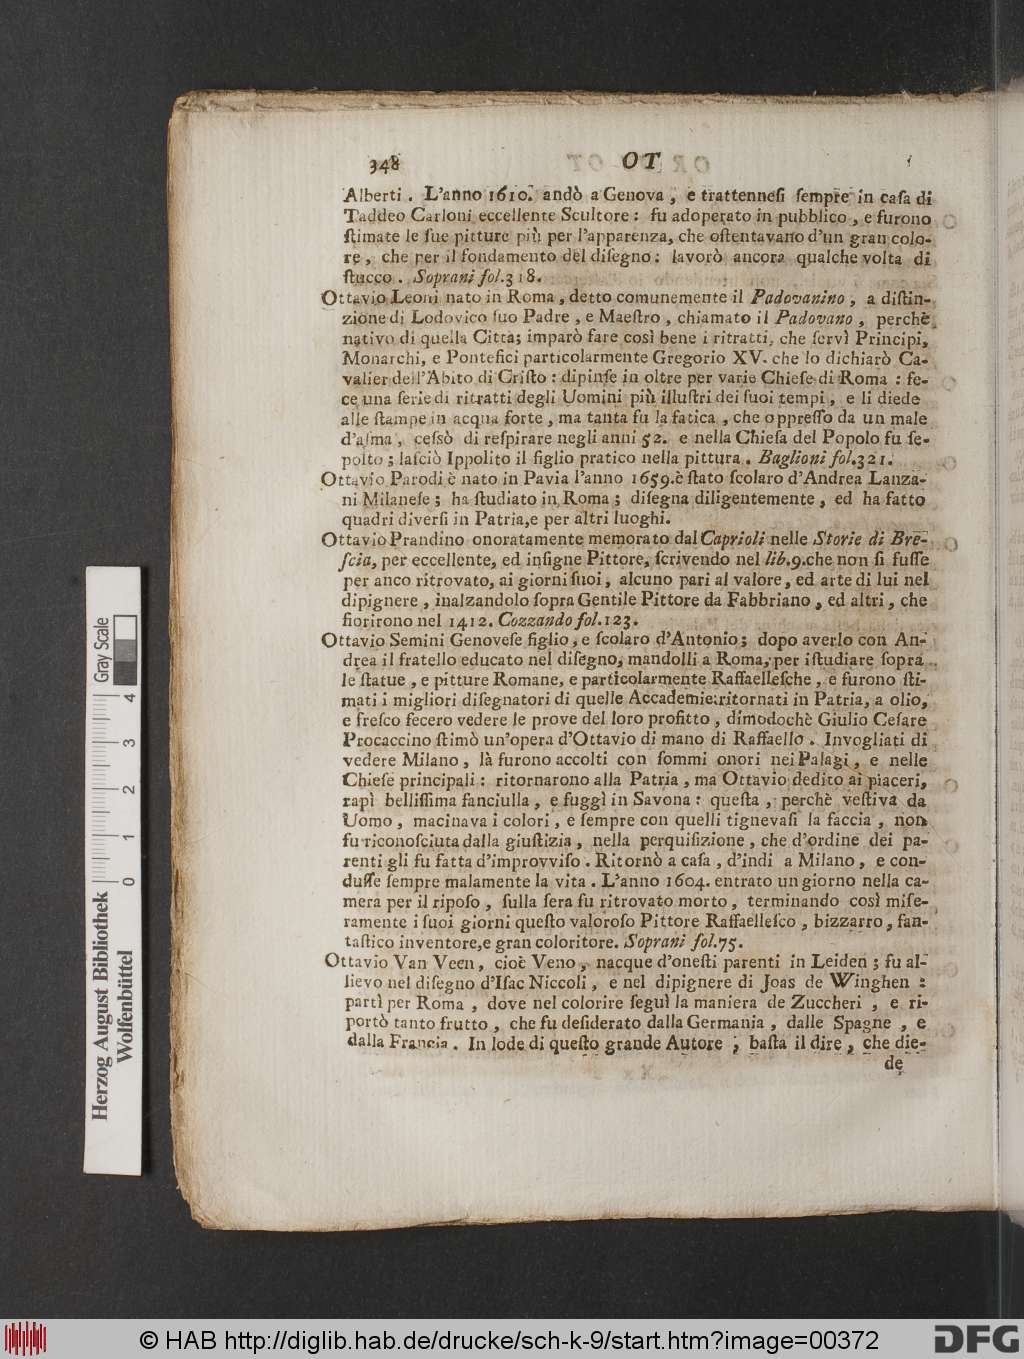 348 OT
Alberti . L'anno 1610. andò a Genova , e trattennesi ſempre in caſa di
Taddeo Carloni eccellente Scultore : fu adoperato in pubblico , e furono
ſtimate le ſue pitture più per l'apparenza, che oſtentavano d'un gran colo-
re , che per il fondamento del diſegno : lavorò ancora qualche volta di
ſtucco . Soprani fol.318.
Ottavio Leoni nato in Roma , detto comunemente il Padovanino , a diſtin-
zione di Lodovico ſuo Padre , e Maeſtro , chiamato il Padovano , perchè
nativo di quella Città; imparò fare così bene i ritratti, che ſervì Principi,
Monarchi, e Pontefici particolarmente Gregorio XV. che lo dichiarò Ca-
valier dell'Abito di Criſto : dipinſe in oltre per varie Chieſe di Roma : fe-
ce una ſerie di ritratti degli Uomini più illuſtri dei ſuoi tempi , e li diede
alle ſtampe in acqua forte , ma tanta fu la fatica , che oppreſſo da un male
d'aſma , ceſsò di reſpirare negli anni 52. e nella Chieſa del Popolo fu ſe-
polto ; laſciò Ippolito il figlio pratico nella pittura . Baglioni fol.321.
Ottavio Parodi è nato in Pavia l'anno 1659.è ſtato ſcolaro d'Andrea Lanza-
ni Milaneſe ; ha ſtudiato in Roma ; diſegna diligentemente , ed ha fatto
quadri diverſi in Patria,e per altri luoghi.
Ottavio Prandino onoratamente memorato dal Caprioli nelle Storie di Bre-
ſcia, per eccellente, ed inſigne Pittore, ſcrivendo nel lib.9.che non ſi fuſſe
per anco ritrovato, ai giorni ſuoi , alcuno pari al valore, ed arte di lui nel
dipignere , inalzandolo ſopra Gentile Pittore da Fabbriano , ed altri , che
fiorirono nel 1412. Cozzando fol.123.
Ottavio Semini Genoveſe figlio , e ſcolaro d'Antonio ; dopo averlo con An-
drea il fratello educato nel diſegno, mandolli a Roma, per iſtudiare ſopra
le ſtatue , e pitture Romane, e particolarmente Raffaelleſche , e furono ſti-
mati i migliori diſegnatori di quelle Accademie:ritornati in Patria, a olio,
e freſco fecero vedere le prove del loro profitto , dimodochè Giulio Ceſare
Procaccino ſtimò un'opera d'Ottavio di mano di Raffaello . Invogliati di
vedere Milano , là furono accolti con ſommi onori nei Palagi , e nelle
Chieſe principali : ritornarono alla Patria , ma Ottavio dedito ai piaceri,
rapì belliſſima fanciulla , e fuggì in Savona : queſta , perchè veſtiva da
Uomo , macinava i colori , e ſempre con quelli tignevaſi la faccia , non
fu riconoſciuta dalla giuſtizia , nella perquiſizione , che d'ordine dei pa-
renti gli fu fatta d'improvviſo . Ritornò a caſa , d'indi a Milano , e con-
duſſe ſempre malamente la vita . L'anno 1604. entrato un giorno nella ca-
mera per il ripoſo , ſulla ſera fu ritrovato morto , terminando così miſe-
ramente i ſuoi giorni queſto valoroſo Pittore Raffaelleſco , bizzarro , fan-
taſtico inventore,e gran coloritore. Soprani fol.75.
Ottavio Van Veen , cioè Veno , nacque d'oneſti parenti in Leiden ; fu al-
lievo nel diſegno d'Iſac Niccoli , e nel dipignere di Joas de Winghen :
partì per Roma , dove nel colorire ſeguì la maniera de Zuccheri , e ri-
portò tanto frutto , che fu deſiderato dalla Germania , dalle Spagne , e
dalla Francia . In lode di queſto grande Autore ; baſta il dire , che die-
de
Herzog August Bibliothek
Wolfenbüttel
0 1 2 3 4
Gray Scale
© HAB http://diglib.hab.de/drucke/sch-k-9/start.htm?image=00372
DFG